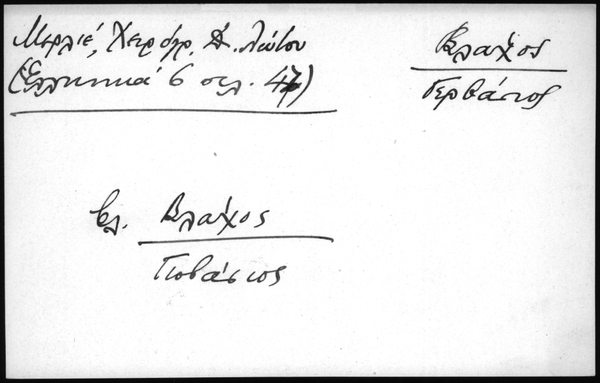 Μερλιέ, Χειρόγρ. Δ. Λώτου
(Ἑλληνικά 6 σελ. 47)
Βλάχος
Γερβάσιος
βλ. Βλάχος
Γιοβάσιος